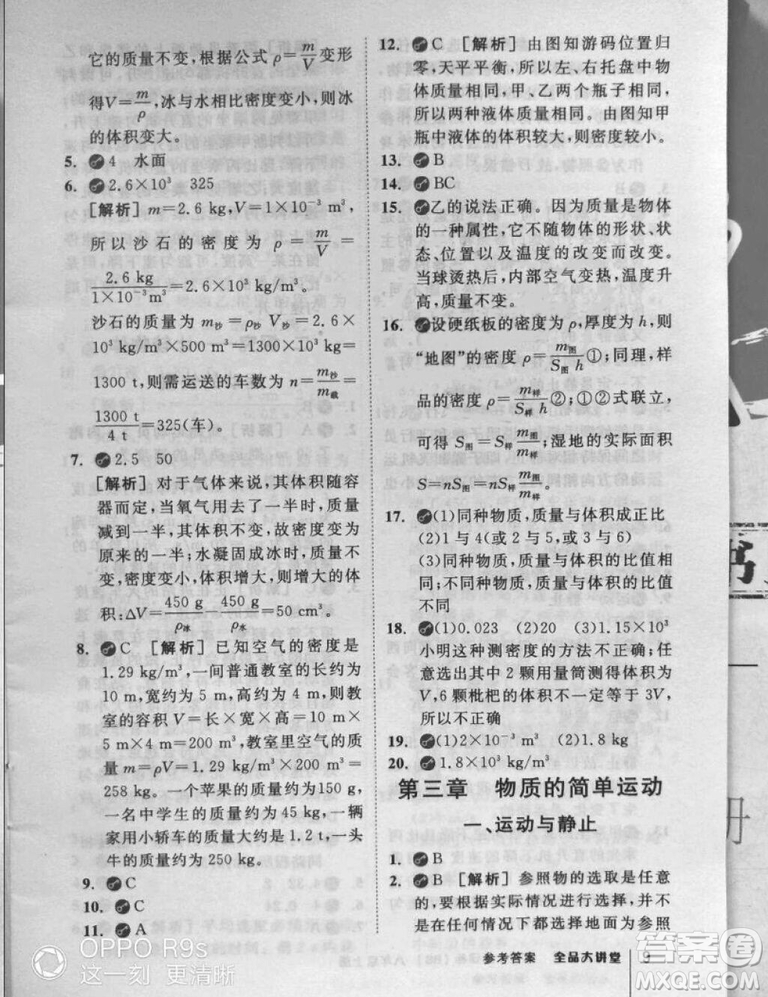 它的质量不变,根据公式 ρ=m/V 变形
得V=m/ρ,冰与水相比密度变小,则冰
的体积变大。
5. 4 水面
6. 2.6×10³ 325
[解析] m=2.6 kg,V=1×10⁻³ m²,
所以沙石的密度为 ρ=m/V=
2.6 kg/1×10⁻³m³=2.6×10³ kg/m³。
沙石的质量为 m沙=ρ沙 V沙=2.6×
10³ kg/m³×500 m³=1300×10³ kg=
1300 t,则需运送的车数为 n=m沙/m载=
1300 t/4 t=325(车)。
7. 2.5 50
[解析] 对于气体来说,其体积随容
器而定,当氧气用去了一半时,质量
减到一半,其体积不变,故密度变为
原来的一半;水凝固成冰时,质量不
变,体积变大,则增大的体
积:ΔV=450 g/ρ冰-450 g/ρ水=50 cm³。
8. C [解析] 已知空气的密度是
1.29 kg/m³,一间普通教室的长约为
10 m,宽约为5 m,高约为4 m,则教
室的容积 V=长×宽×高=10 m×
5 m×4 m=200 m³,教室里空气的质
量m=ρV=1.29 kg/m³×200 m³=
258 kg。一个苹果的质量约为150 g,
一名中学生的质量约为50 kg,一辆
家用小轿车的质量约为1.2 t,一头
牛的质量约为 250 kg。
9. C
10. C
11. A
12. C [解析] 由图知游码位置归
零,天平平衡,所以左、右托盘中物
体质量相同,甲、乙两个瓶子相同,
所以两种液体质量相同。由图知甲
瓶中液体的体积较大,则密度较小。
13. B
14. BC
15. 乙的说法正确。因为质量是物体
的一种属性,它不随物体的形状、状
态、位置以及温度的改变而改变。
当球烫热后,内部空气变热,温度升
高,质量不变。
16. 设硬纸板的密度为ρ,厚度为h,则
“地图”的密度 ρ=m图/S图 h①;同理,样
品的密度 ρ=m样/S样 h②;①②式联立,
可得 S图=S样m图/m样;湿地的实际面积
S=nS图=nS样m图/m样。
17. (1)同种物质,质量与体积成正比
(2)1与4(或2与5,或3与6)
(3)同种物质,质量与体积的比值相
同;不同的物质,质量与体积的比值
不同
18. (1)0.023 (2)20 (3)1.15×10³
小明这种测密度的方法不正确。任
意选出其中2颗用量筒测得体积为
V,6颗枇杷的体积不一定等于3V,
所以不正确
19. (1)2×10⁻³ m³ (2)1.8 kg
20. 1.8×10³ kg/m³
第三章 物质的简单运动
一、运动与静止
1. B
2. B [解析] 参照物的选取是任意
的,要根据实际情况进行选择,并不
是在任何情况下都选择地面为参照
参考答案 全品大讲堂 9
OPPO R9s
这一刻 更清晰